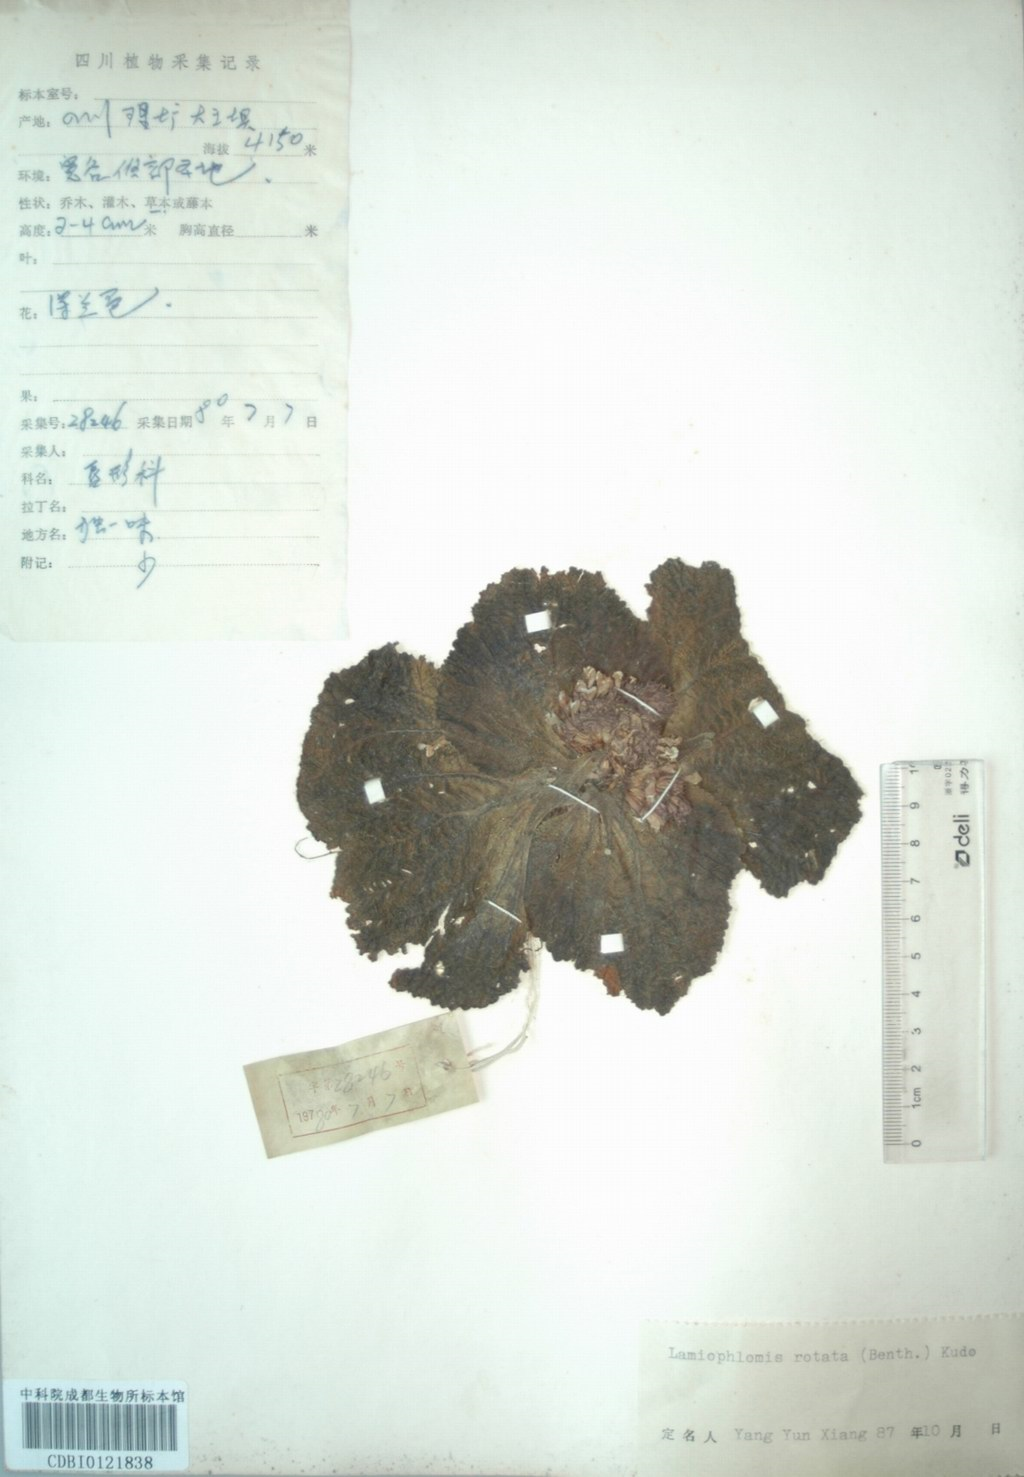 四川植物采集记录
标本室号:
产地: 四川
海拔 4150 米
环境:
性状: 乔木、灌木、草本或藤本
高度: 2-4cm 米 胸高直径 米
叶:
花:
果:
采集号: 28246 采集日期 80 年 7 月 7 日
采集人:
科名: 唇形科
拉丁名:
地方名: 独一味
附记: 少
28246 号
197 80 年 7 月 7 日
10 9 8 7 6 5 4 3 2 1cm 0
deli 得力
Lamiophlomis rotata (Benth.) Kudo
定名人 Yang Yun Xiang 87 年 10 月 日
中科院成都生物所标本馆
CDBI0121838